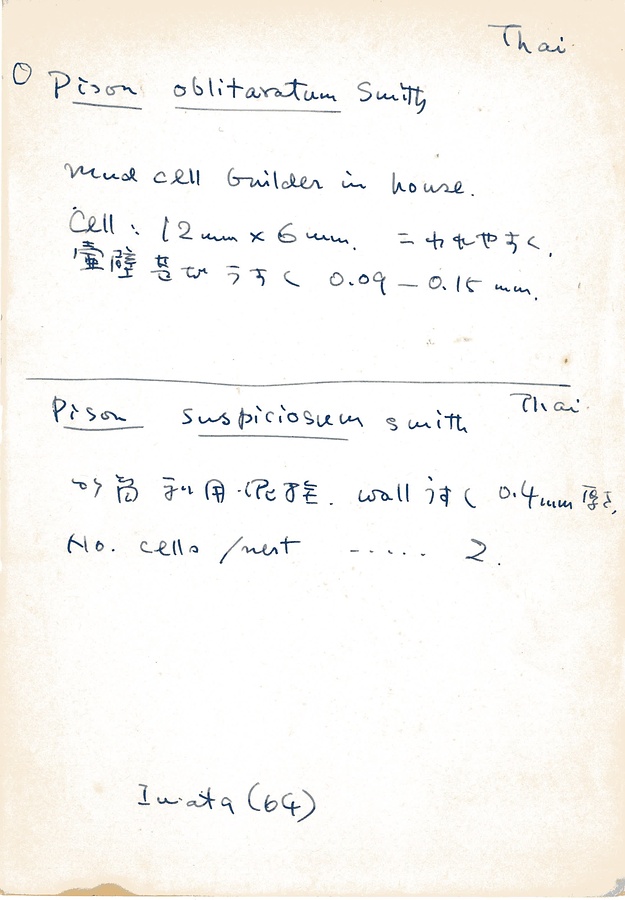 Thai
○ Pison oblitaratum Smith
mud cell builder in house.
Cell : 12mm × 6mm. こわれやすく、
壷壁 甚だ うすく 0.09 — 0.15 mm.
Pison suspiciosum smith Thai
竹筒 利用 泥 wall うすく 0.4mm 厚さ,
No. cells /nest ----- 2.
Iwata (64)